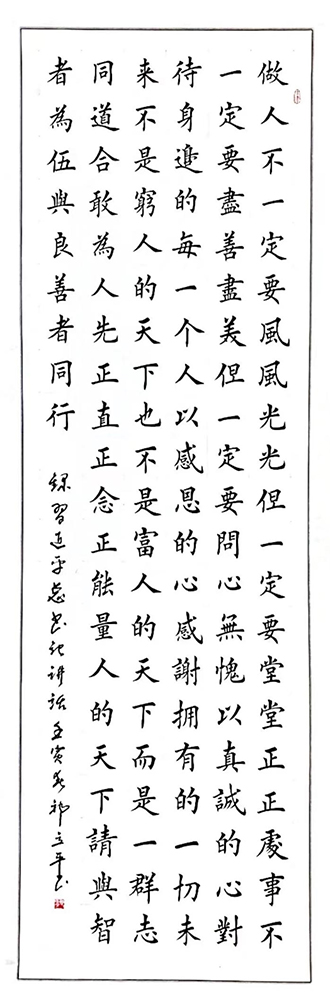 做人不一定要風風光光但一定要堂堂正正處事不
一定要盡善盡美但一定要問心無愧以真誠的心對
待身邊的每一个人以感恩的心感謝拥有的一切未
来不是窮人的天下也不是富人的天下而是一群志
同道合敢為人先正直正念正能量人的天下請與智
者為伍與良善者同行 錄習近平总书记讲话壬寅春祁立平书